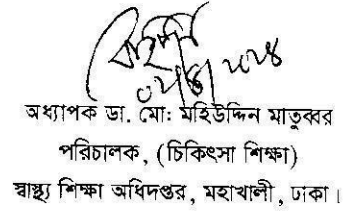 অধ্যাপক ডা. মোঃ মহিউদ্দিন মাতুব্বর
পরিচালক, (চিকিৎসা শিক্ষা)
স্বাস্থ্য শিক্ষা অধিদপ্তর, মহাখালী, ঢাকা।